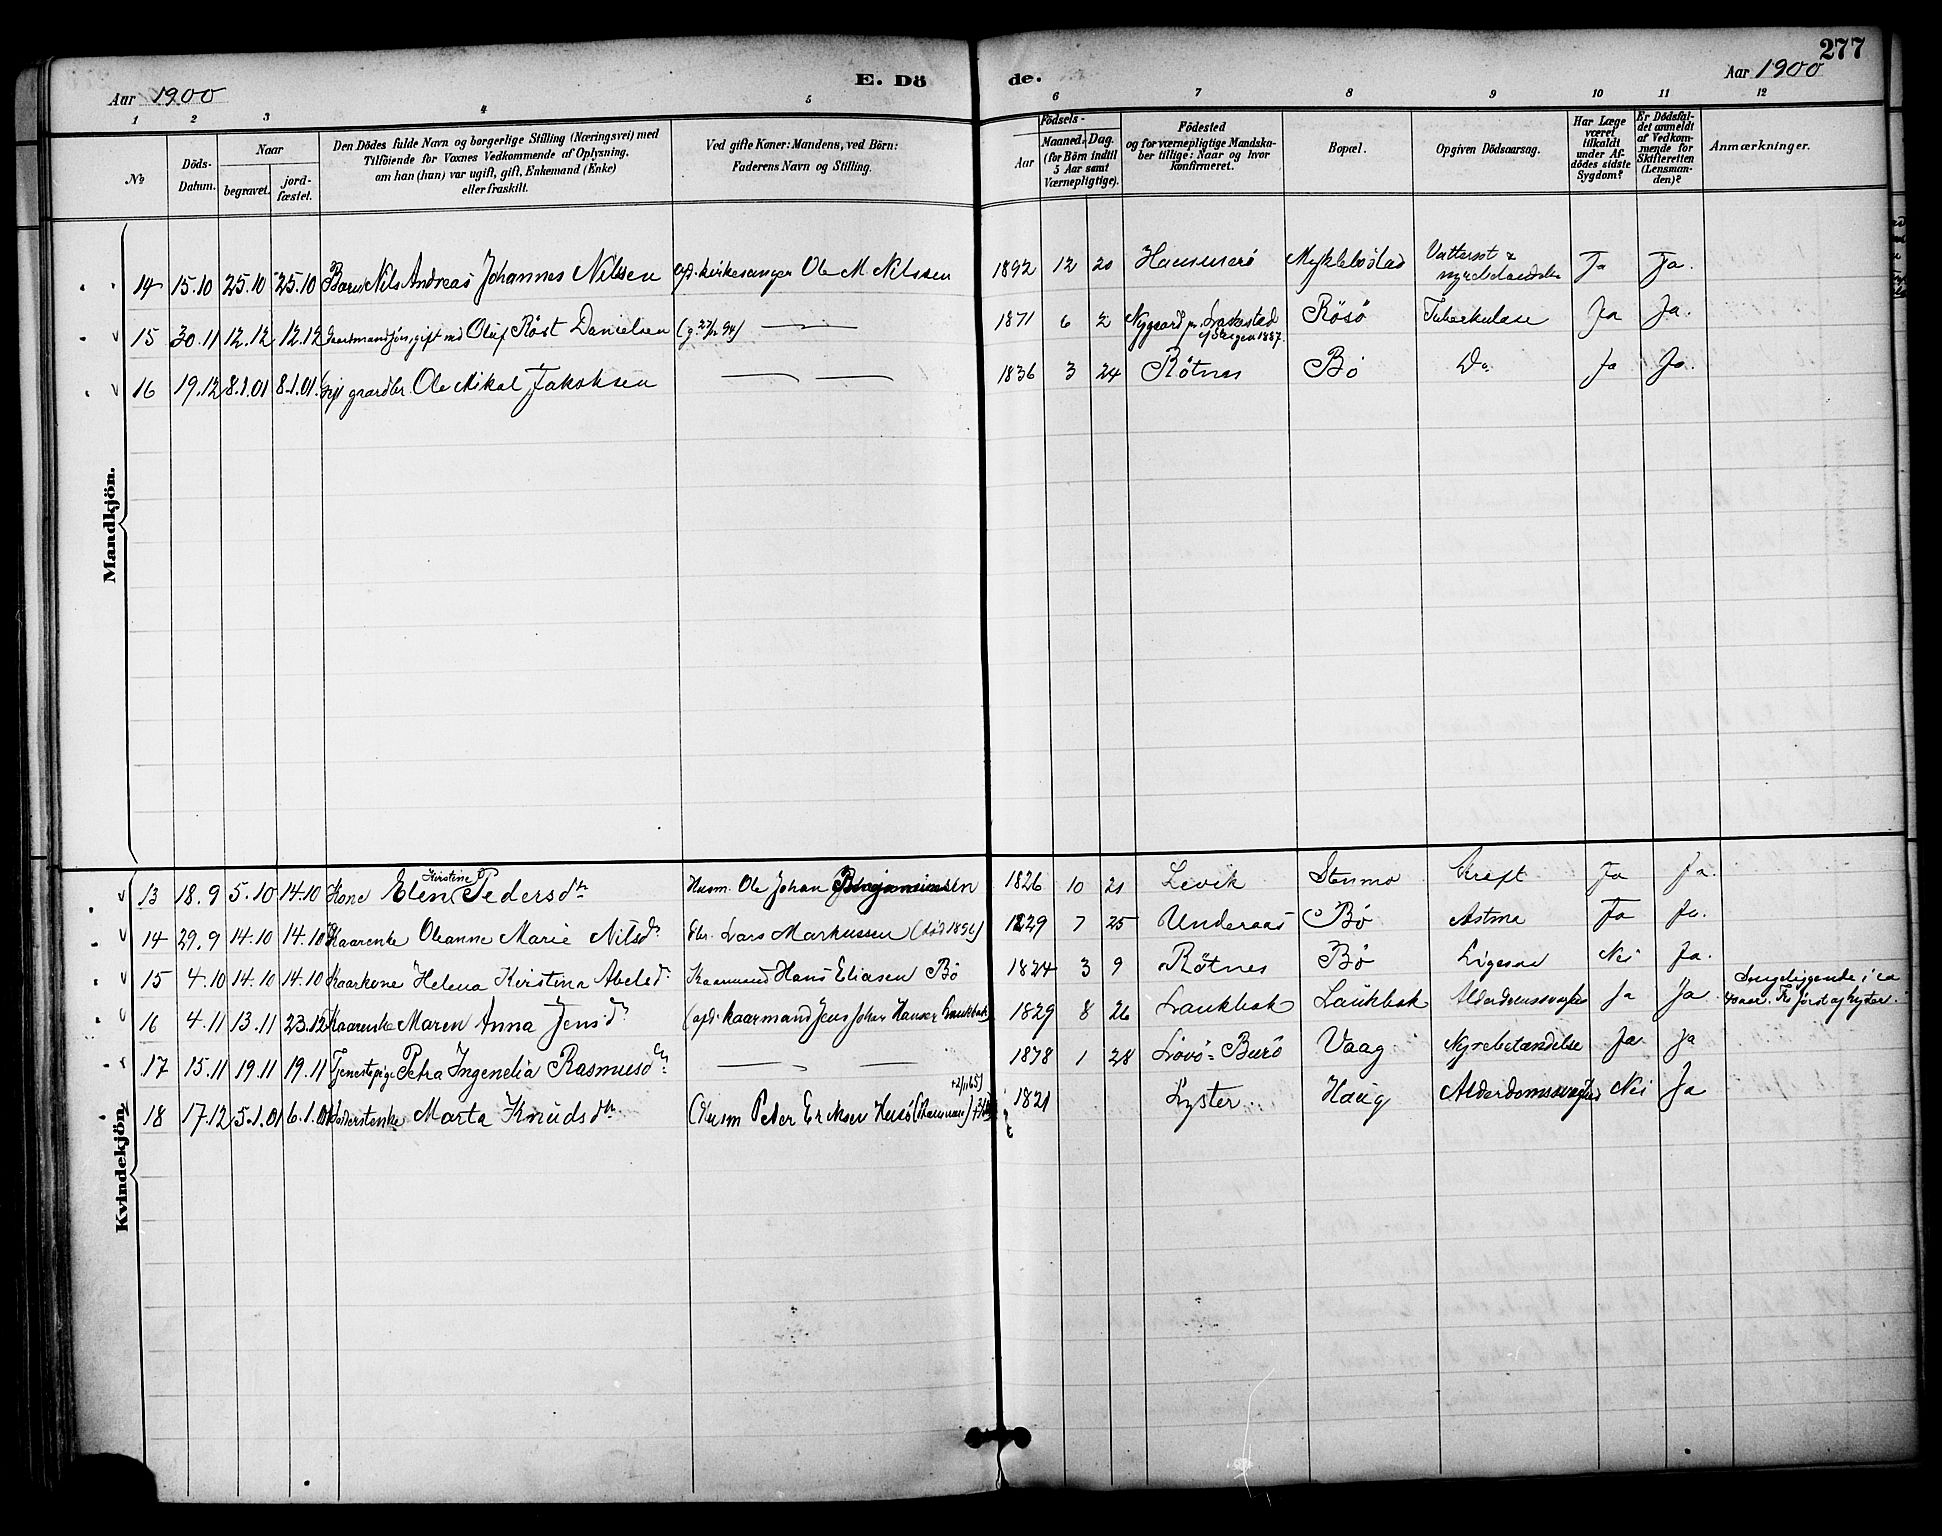 277
Aar 1900
E. Dö de.
Aar 1900
1 2 3 4 5 6 7 8 9 10 11 12
№
Döds-Datum.
Naar
begravet.
jord-fæstet.
Den Dödes fulde Navn og borgerlige Stilling (Næringsvei) med
Tilföiende for Voxnes Vedkommende af Oplysning,
om han (hun) var ugift, gift, Enkemand (Enke)
eller fraskilt.
Ved gifte Koner: Mandens, ved Börn:
Faderens Navn og Stilling.
Födsels-
Aar
Maaned. Dag.
(for Börn indtil
5 Aar samt
Værnepligtige).
Födested
og for værnepligtige Mandska-
ber tillige: Naar og hvor
konfirmeret.
Bopæl.
Opgiven Dödsaarsag.
Har Læge
været
tilkaldt
under Af-
dödes sidste
Sygdom?
Er Dödsfal-
det anmeldt
af Vedkom-
mende for
Skifteretten
(Lensman-
den)?
Anmærkninger.
Mandkjön.
14 15.10 25.10 25.10 Barn Nils Andreas Johannes Nilssen kirkesanger Ole M. Nilssen 1892 12 20 Myklebostad Vattersot & Ja Ja.
15 30.11 12.12 12.12 gift med Oluf Röst Danielsen 1871 6 2 Nygaard Rösö Tuberkulose Ja Ja.
16 19.12 8.1.01 8.1.01 Gift gaardbr. Ole Mikal Jakobsen 1836 3 24 Rötnes Bö Do Ja Ja.
Kvindekjön.
13 18.9 5.10 14.10 Kone Elen Kirstine Pedersdr Husm. Ole Johan Benjaminsen 1826 10 21 Levik Stenmo Kreft Ja Ja.
14 29.9 14.10 14.10 Kaarenke Oleanne Marie Nilsdr Lars Markussen 1829 7 25 Underaas Bö Astma Ja Ja.
15 4.10 14.10 14.10 Kaarkone Helena Kirstina Abelsdr Kaarmand Hans Eliasen Bö 1824 3 9 Rötnes Bö Ligesaa Nei Ja. Sengeliggende i ca
16 4.11 13.11 23.12 Kaarenke Maren Anna Jensdr kaarmand Jens Johan Hansen Laukbak) 1829 8 26 Laukbak Laukbak Ja Ja
17 15.11 19.11 19.11 Tjenestepige Petra Ingenelia Rasmusdr 1878 1 28 Lövö- Burö Vaag Nyrebetændelse Ja Ja
18 17.12 5.1.01 6.1.01 Marta Knudsdr (Husm Peder Eriksen Husö 1821 Lyster Haug Alderdomssvaghed Nei Ja